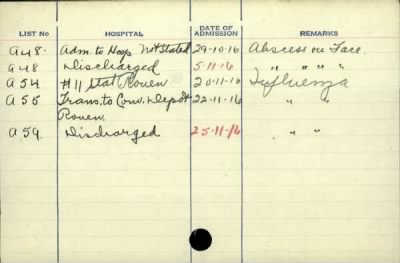 LIST No HOSPITAL DATE OF ADMISSION REMARKS
a 48. Adm. to Hosp Not Stated 29-10-16 Abscess on Face.
a 48 Discharged 5-11-16 " " " "
a 54 #11 Stat Rouen 20-11-16 Influenza
a 55 Trans. to Conv. Depot 22-11-16 " "
Rouen.
a 59. Discharged 25-11-16 " "